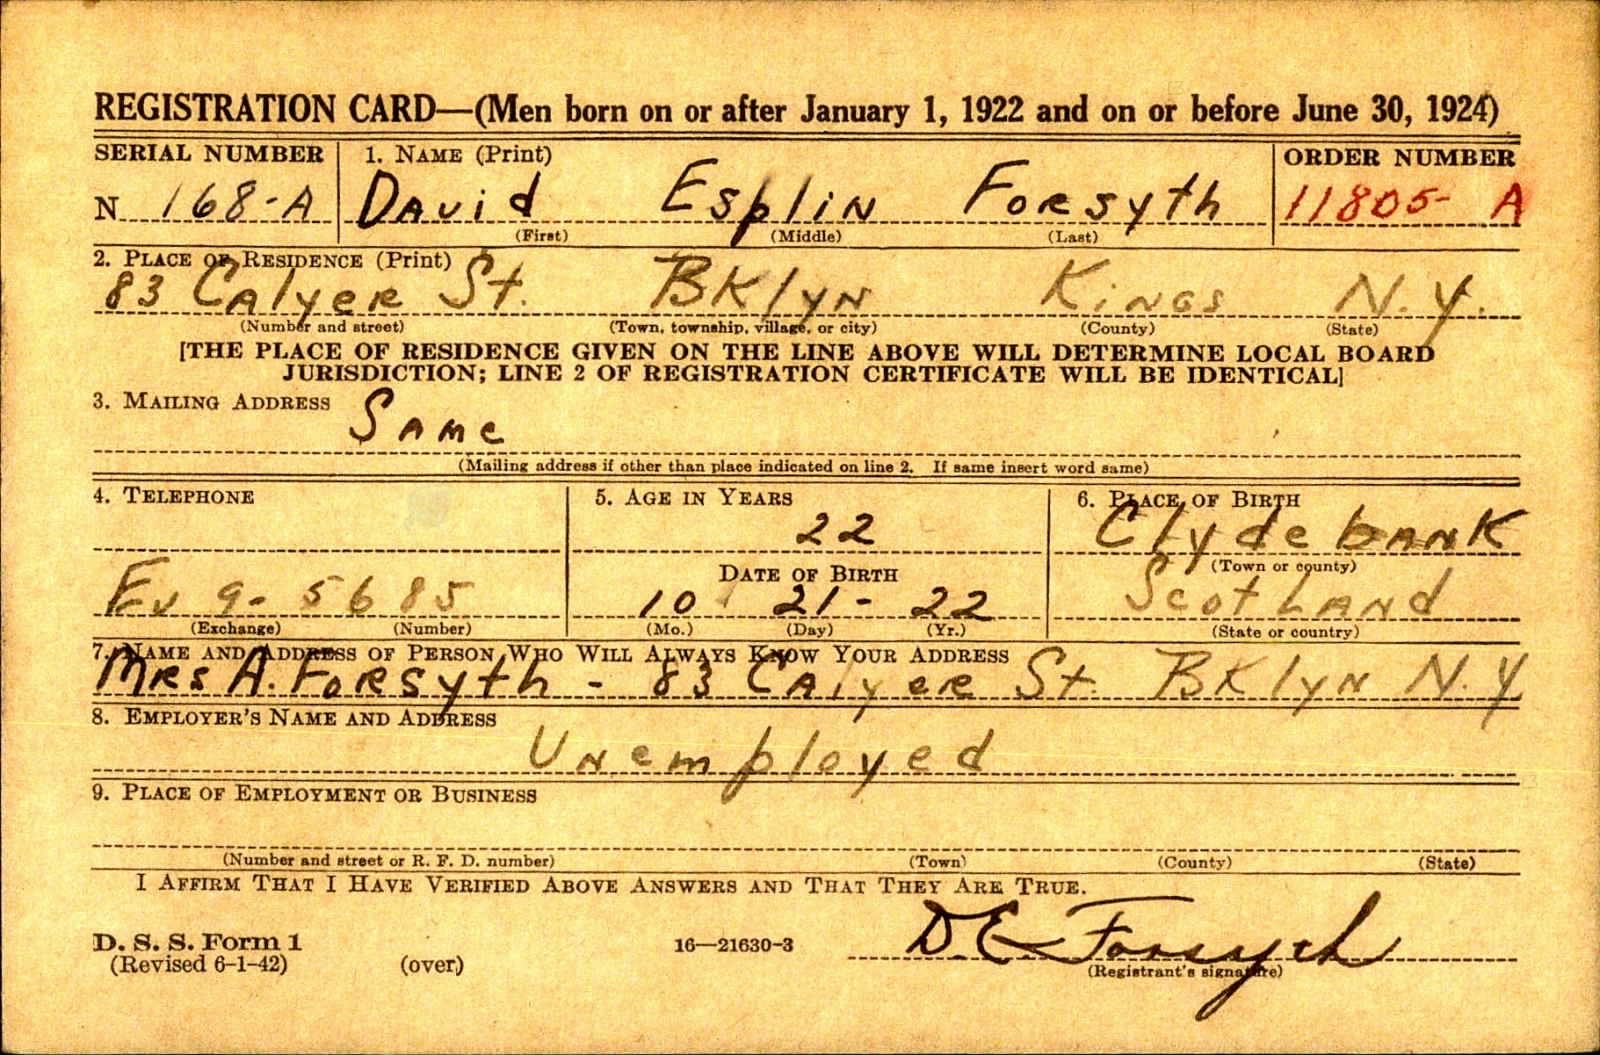 REGISTRATION CARD—(Men born on or after January 1, 1922 and on or before June 30, 1924)
SERIAL NUMBER 1. NAME (Print) ORDER NUMBER
N 168-A David Esplin Forsyth 11805- A
(First) (Middle) (Last)
2. PLACE OF RESIDENCE (Print)
83 Calyer St. Bklyn Kings N.Y.
(Number and street) (Town, township, village, or city) (County) (State)
[THE PLACE OF RESIDENCE GIVEN ON THE LINE ABOVE WILL DETERMINE LOCAL BOARD
JURISDICTION; LINE 2 OF REGISTRATION CERTIFICATE WILL BE IDENTICAL]
3. MAILING ADDRESS
Same
(Mailing address if other than place indicated on line 2. If same insert word same)
4. TELEPHONE 5. AGE IN YEARS 6. PLACE OF BIRTH
22 Clydebank
DATE OF BIRTH (Town or county)
Ev 9- 5685 10 21- 22 Scotland
(Exchange) (Number) (Mo.) (Day) (Yr.) (State or country)
7. NAME AND ADDRESS OF PERSON WHO WILL ALWAYS KNOW YOUR ADDRESS
Mrs A. Forsyth - 83 Calyer St. Bklyn N.Y
8. EMPLOYER'S NAME AND ADDRESS
Unemployed
9. PLACE OF EMPLOYMENT OR BUSINESS
(Number and street or R. F. D. number) (Town) (County) (State)
I AFFIRM THAT I HAVE VERIFIED ABOVE ANSWERS AND THAT THEY ARE TRUE.
D. S. S. Form 1 D.E. Forsyth
(Revised 6-1-42) (over) 16—21630-3 (Registrant's signature)